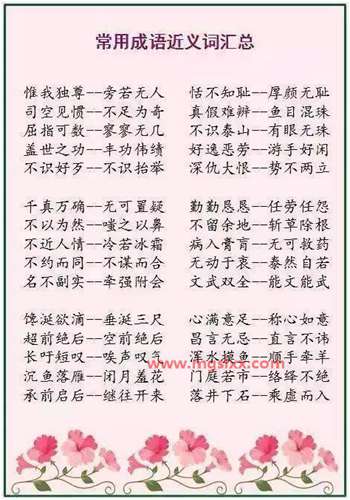 常用成语近义词汇总
惟我独尊--旁若无人 恬不知耻--厚颜无耻
司空见惯--不足为奇 真假难辨--鱼目混珠
屈指可数--寥寥无几 不识泰山--有眼无珠
盖世之功--丰功伟绩 好逸恶劳--游手好闲
不识好歹--不识抬举 深仇大恨--势不两立
千真万确--无可置疑 勤勤恳恳--任劳任怨
不以为然--嗤之以鼻 不留余地--斩草除根
不近人情--冷若冰霜 病入膏肓--无可救药
不约而同--不谋而合 无动于衷--泰然自若
名不副实--牵强附会 文武双全--能文能武
馋涎欲滴--垂涎三尺 心满意足--称心如意
超前绝后--空前绝后 昌言无忌--直言不讳
长吁短叹--唉声叹气 浑水摸鱼--顺手牵羊
www.mgslxx.com
沉鱼落雁--闭月羞花 门庭若市--络绎不绝
承前启后--继往开来 落井下石--乘虚而入